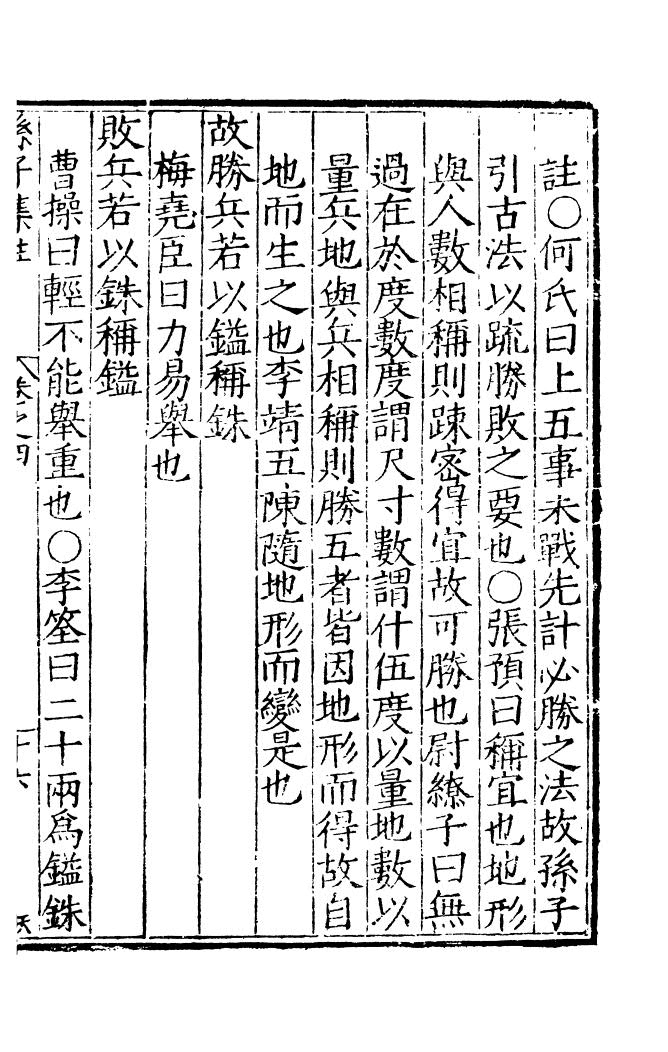 註○何氏曰上五事未戰先計必勝之法故孫子
引古法以䟽勝敗之要也○張預曰稱宜也地形
與人數相稱則踈宻得宜故可勝也尉繚子曰無
過在於度數度謂尺寸數謂什伍度以量地數以
量兵地與兵相稱則勝五者皆因地形而得故自
地而生之也李靖五陳隨地形而變是也
故勝兵若以鎰稱銖
梅堯臣曰力易舉也
敗兵若以銖稱鎰
曹操曰輕不能舉重也○李筌曰二十兩爲鎰銖
孫子集註
卷之四
十六